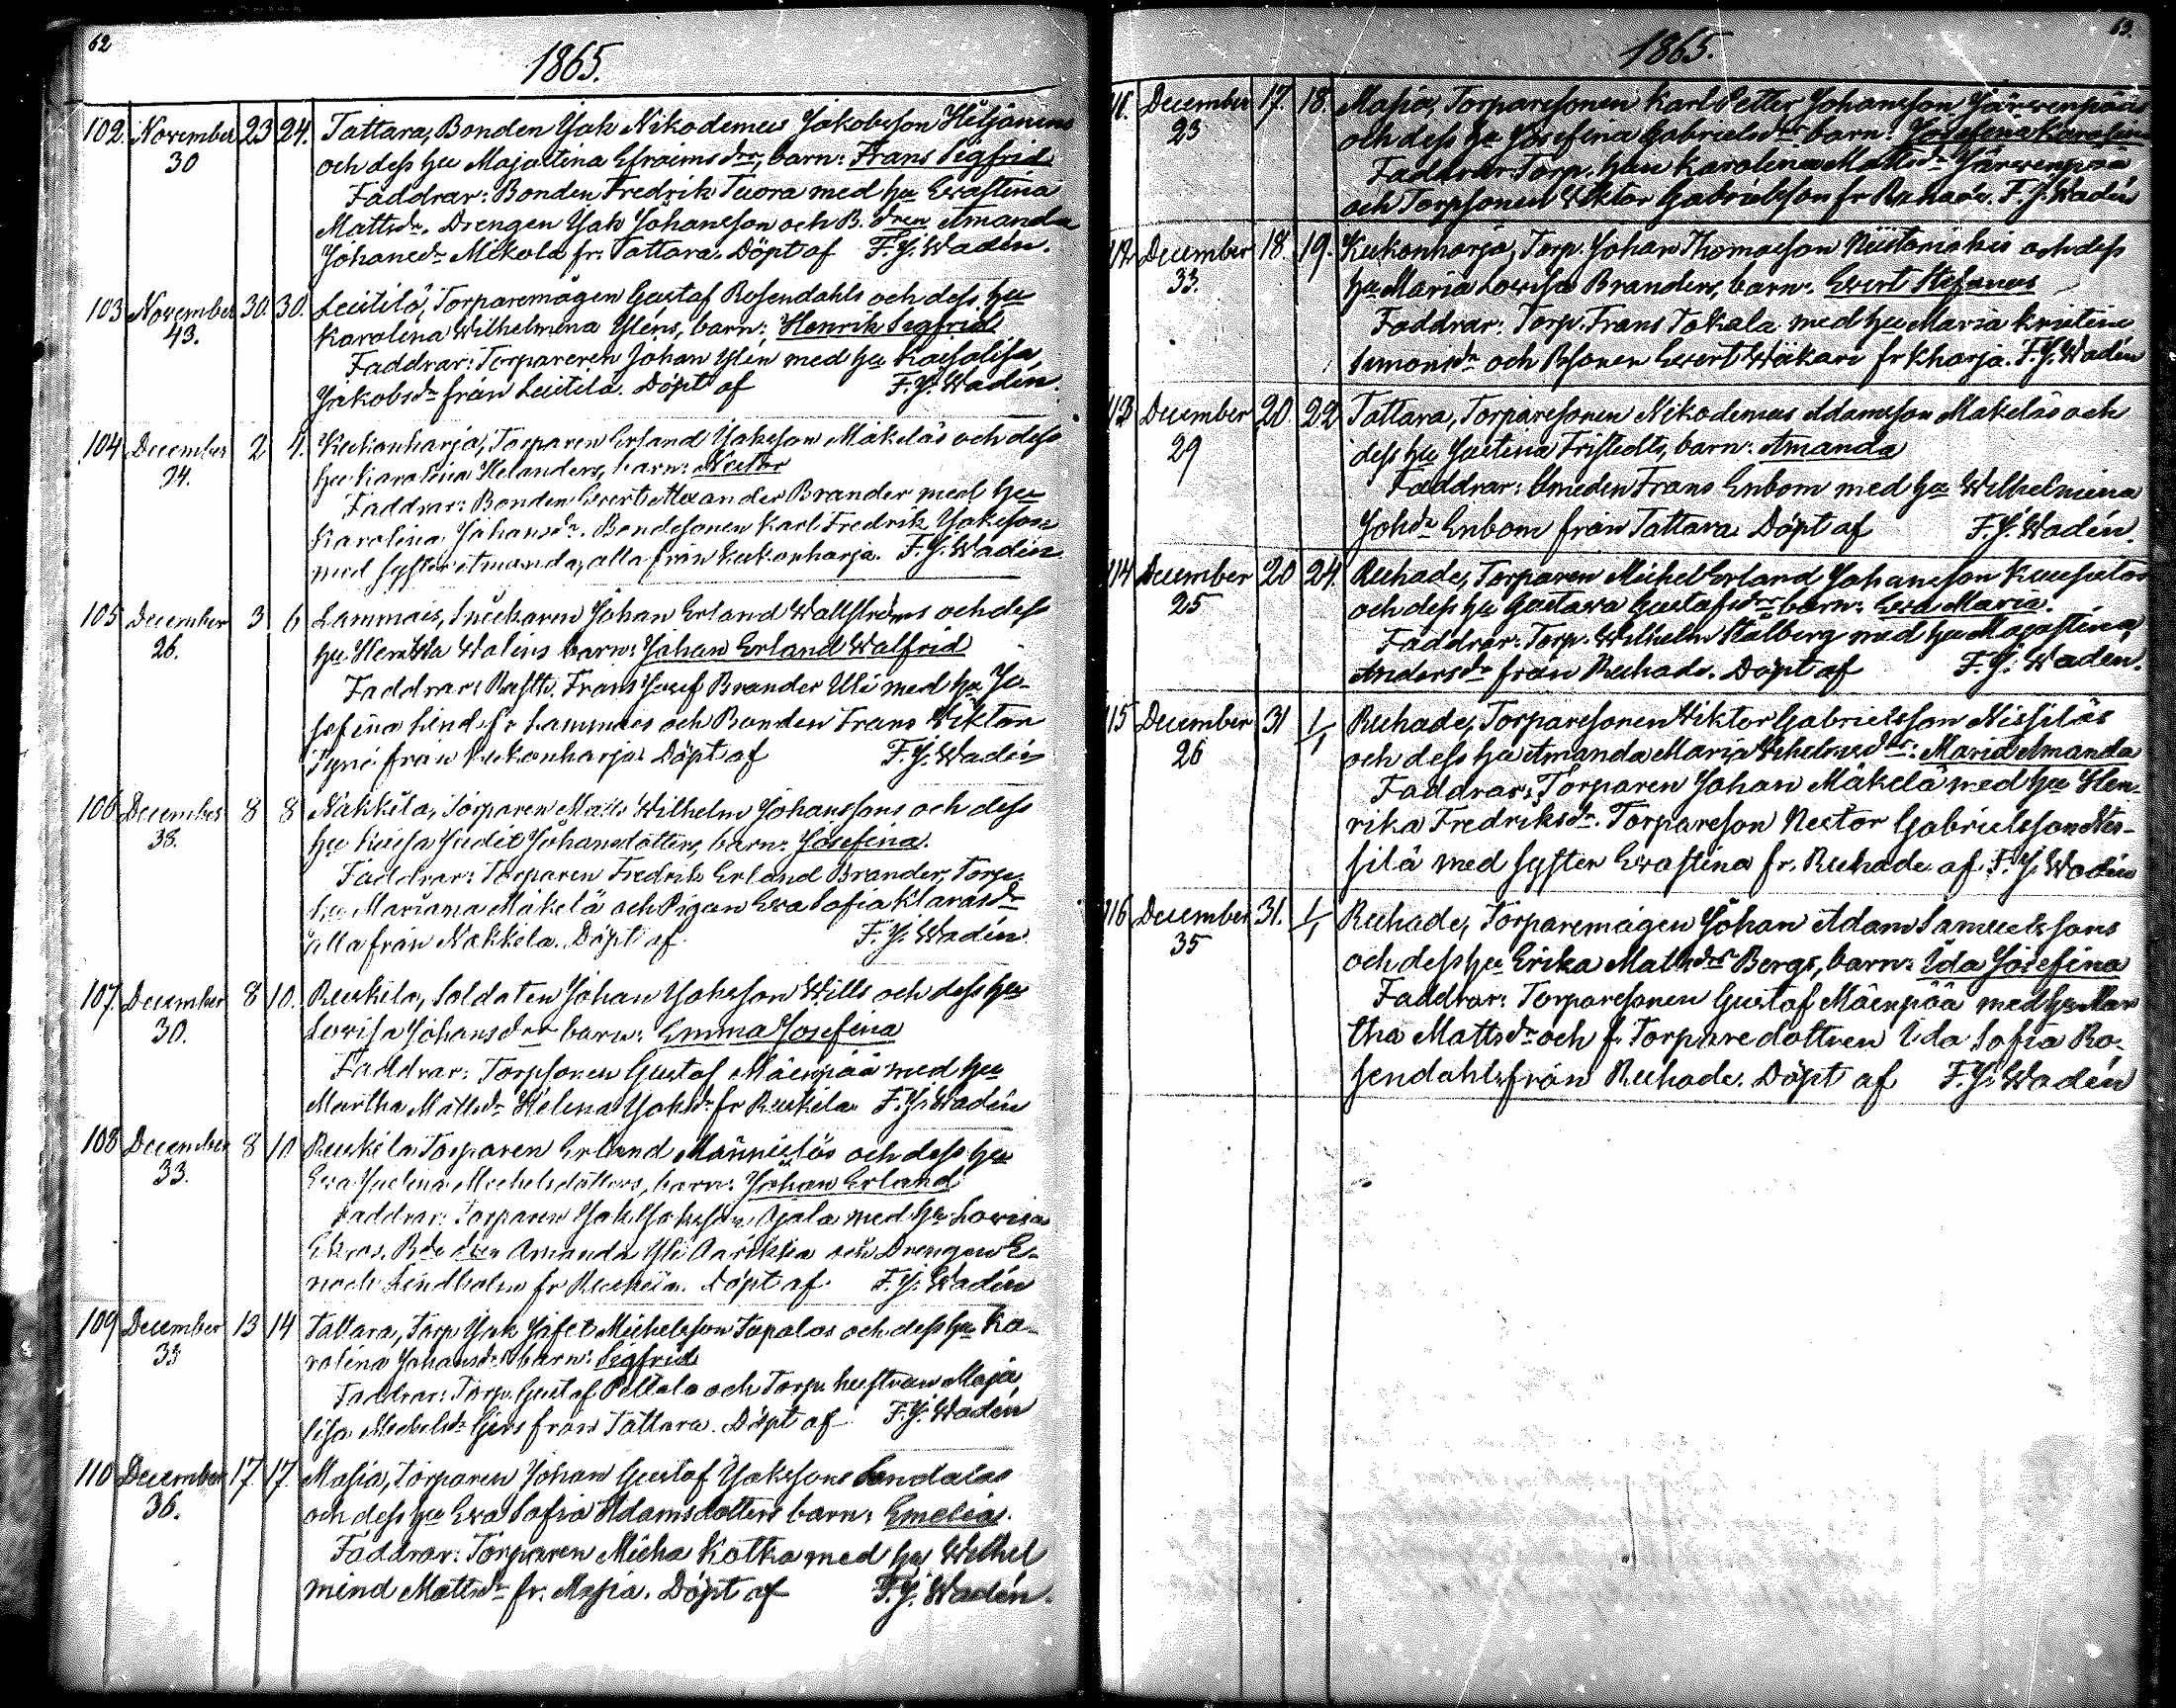 62
1865.
102. November 23 24. Tattara, Bonden Jak Nikodemus Jakobsson Heljänens
30 och dess hu Majastina Efraimsdr, barn: Frans Sigfrid
Faddrar: Bonden Fredrik Tuora med hu Evastina
Mattsdr. Drengen Jak Johansson och B. dren Amanda
Johansdr Mikola fr. Tattara. Döpt af F. J. Wadén.
103 November 30. 30. Leitilä, Torparemågen Gustaf Rosendahls och dess hu
43. Karolina Wilhelmina Yléns, barn: Henrik Sigfrid
Faddrar: Torpareren Johan Ylén med hu Kajsalisa
Jakobsdr från Leitilä. Döpt af F. J. Wadén.
104 December 2 4. Kukonharja, Torparen Erland Jaksson Mäkeläs och dess
24. hu Karolina Helanders, barn: Nestor
Faddrar: Bonden Evert Alexander Brander med hu
Karolina Johansdr. Bondesonen Karl Fredrik Jaksson
med syster Amanda, alla från Kukonharja. F. J. Wadén
105 December 3 6 Lammais, Snickaren Johan Erland Wallströms och dess
26. hu Henrika Walins barn: Johan Erland Walfrid
Faddrar: Frans Josef Brander Uli med hu Jo-
sefina Lind fr Lammais och Bonden Frans Wiktor
från Kukonharja Döpt af F. J. Wadén
106 December 8 8 Nakkila, Torparen Matts Wilhelm Johanssons och dess
38. hu Judit Johansdotters, barn: Josefina.
Faddrar: Torparen Fredrik Erland Brander, Torp.
hu Mariana Mäkelä och Pigan Eva Sofia Klarasdr
alla från Nakkila. Döpt af F. J. Wadén.
107. December 8 10. Ruskila, Soldaten Johan Jaksson Wills och dess hu
30. Lovisa Johansdrs barn: Emma Josefina
Faddrar: Torpsonen Gustaf Mäenpää med hu
Martha Mattsdr Helena Jaksdr fr Ruskila F. J. Wadén
108 December 8 10 Ruskila Torparen Erland Männistös och dess hu
33. Eva Michelsdotters, barn: Johan Erland
Faddrar: Torparen Jak Jaksson Ojala med hu Lovisa
Amanda Yli och Drengen E-
noch Lindholm fr Ruskila. Döpt af F. J. Wadén
109 December 13 14 Tattara, Torp. Jak Jafet Michelsson Tapalas och dess hu Ka-
33 rolina Johansdrs barn: Sigfrid
Faddrar: Torp. Gustaf Peltala och Torp. hustrun Maja
lisa Michelsdr från Tattara. Döpt af F. J. Wadén
110 December 17. 17. Masia, Torparen Johan Gustaf Jakssons
36. och dess hu Eva Sofia Adamsdotters barn: Emelia.
Faddrar: Torparen Micha Kotka med hu Wilhel
mina Mattsdr fr. Masia. Döpt af F. J. Wadén.
63.
1865.
December 17. 18. Masia, Torparesonen Karl Petter Johansson Järvenpääs
23 och dess hu Josefina Gabrielsdrs barn: Josefina Karolina
Faddrar: Torp. hun Karolina Mattsdr Järvenpää
och Torpsonen Viktor Gabrielsson fr Ruhade. F. J. Wadén
December 18. 19. Kukonharja, Torp. Johan Thomasson och dess
33. hu Maria Lovisa Branders, barn: Evert Stefanus
Faddrar: Torp. Frans Tokala med hu Maria Kristina
Simonsdr och Bsonen Evert Wäkari fr Kharja. F. J. Wadén
113 December 20. 22 Tattara, Torparesonen Nikodemus Adamsson Mäkeläs och
29 dess hu Justina Fristedts, barn: Amanda
Faddrar: Smeden Frans Enbom med hu Wilhelmina
Johdr Enbom från Tattara Döpt af F. J. Wadén.
114 December 20 24. Ruhade, Torparen Michel Erland Johansson
25 och dess hu Gustava Gustafsdrs barn: Eva Maria.
Faddrar: Torp. Wilhelm Stålberg med hu Majastina
Andersdr från Ruhade. Döpt af F. J. Wadén.
115 December 31 1/1 Ruhade, Torparesonen Viktor Gabrielsson Nissiläs
26 och dess hu Amanda Maria Michelsdrs: Maria Amanda
Faddrar: Torparen Johan Mäkelä med hu Hen-
rika Fredriksdr. Torpareson Nestor Gabrielsson Nis-
silä med syster Evastina fr. Ruhade af F. J. Wadén
116 December 31. 1/1 Ruhade, Torparemågen Johan Adam Samuelssons
35 och dess hu Erika Mattsdrs Bergs, barn: Ida Josefina
Faddrar: Torparesonen Gustaf Mäenpää med hu Mar
tha Mattsdr och f. Torparedottren Ida Sofia Ro-
sendahl från Ruhade. Döpt af F. J. Wadén